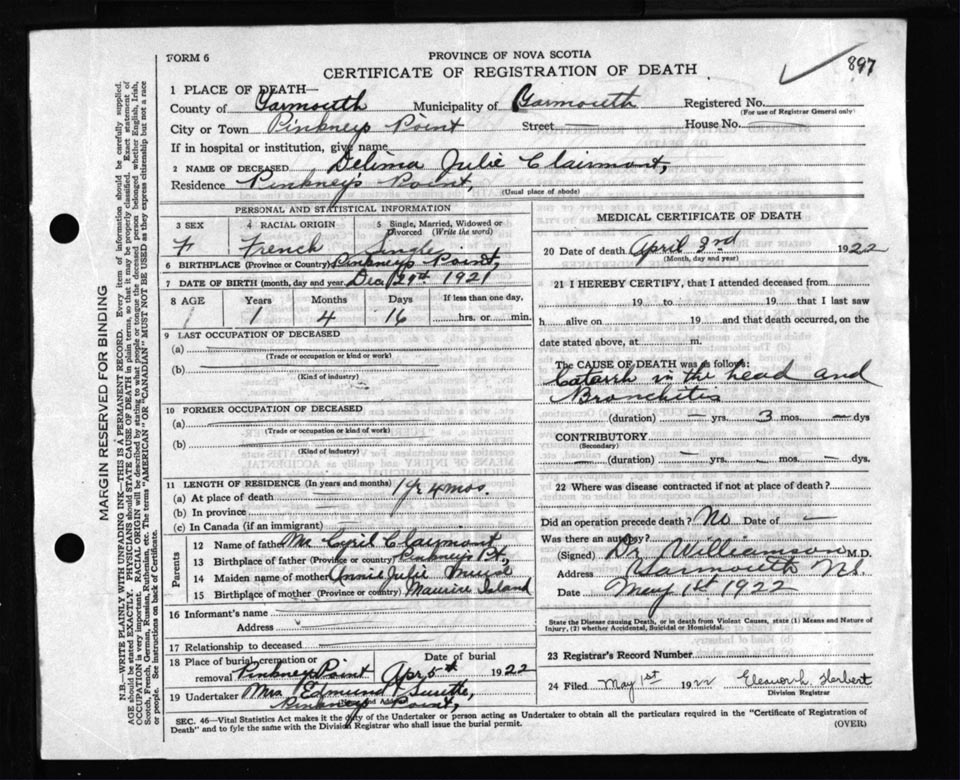 FORM 6
PROVINCE OF NOVA SCOTIA
CERTIFICATE OF REGISTRATION OF DEATH
897
1 PLACE OF DEATH—
County of Yarmouth Municipality of Yarmouth Registered No.
(For use of Registrar General only)
City or Town Pinkneys Point Street House No.
If in hospital or institution, give name
2 NAME OF DECEASED Delima Julie Clairmont,
Residence Pinkney's Point,
(Usual place of abode)
PERSONAL AND STATISTICAL INFORMATION
3 SEX 4 RACIAL ORIGIN 5 Single, Married, Widowed or Divorced (Write the word)
F French Single
6 BIRTHPLACE (Province or Country) Pinkneys Point,
7 DATE OF BIRTH (month, day and year) Dec 1921
8 AGE Years Months Days If less than one day,
1 4 16 hrs. or min.
9 LAST OCCUPATION OF DECEASED
(a)
(Trade or occupation or kind or work)
(b)
(Kind of industry)
10 FORMER OCCUPATION OF DECEASED
(a)
(Trade or occupation or kind or work)
(b)
(Kind of industry)
11 LENGTH OF RESIDENCE (In years and months) 1 yr 4 mos.
(a) At place of death
(b) In province
(c) In Canada (if an immigrant)
Parents
12 Name of father Mr Cyril Clairmont
13 Birthplace of father (Province or country) Pinkney's Pt,
14 Maiden name of mother Annie Julie Muise
15 Birthplace of mother (Province or country) Maurice Island
16 Informant's name
Address
17 Relationship to deceased
18 Place of burial, cremation or removal Pinkneys Point Date of burial Apr 5th 1922
19 Undertaker Mrs Edmund Surette,
Pinkney's Point,
MEDICAL CERTIFICATE OF DEATH
20 Date of death April 3rd 1922
(Month, day and year)
21 I HEREBY CERTIFY, that I attended deceased from
19 to 19 that I last saw
h alive on 19 and that death occurred, on the
date stated above, at m.
The CAUSE OF DEATH was as follows:
Catarrh in the head and
Bronchites
(duration) — yrs. 3 mos. — dys
CONTRIBUTORY
(Secondary)
— (duration) — yrs. — mos. — dys.
22 Where was disease contracted if not at place of death?
Did an operation precede death? No Date of —
Was there an autopsy?
(Signed) Dr Williamson M.D.
Address Yarmouth N.S.
Date May 1st 1922
State the Disease causing Death, or in death from Violent Causes, state (1) Means and Nature of
Injury, (2) whether Accidental, Suicidal or Homicidal.
23 Registrar's Record Number
24 Filed May 1st 1922 Eleanor L. Herbert
Division Registrar
SEC. 46—Vital Statistics Act makes it the duty of the Undertaker or person acting as Undertaker to obtain all the particulars required in the "Certificate of Registration of
Death" and to fyle the same with the Division Registrar who shall issue the burial permit.
(OVER)
MARGIN RESERVED FOR BINDING
N.B.—WRITE PLAINLY WITH UNFADING INK—THIS IS A PERMANENT RECORD. Every item of information should be carefully supplied.
AGE should be stated EXACTLY. PHYSICIANS should STATE CAUSE OF DEATH in plain terms, so that it may be properly classified. Exact statement of
OCCUPATION is very important. RACIAL ORIGIN will be described by stating to what people or tongue the deceased person belonged whether English, Irish,
Scotch, French, German, Russian, Ruthenian, etc. The terms "AMERICAN" OR "CANADIAN" MUST NOT BE USED as they express citizenship but not a race
or people. See instructions on back of Certificate.